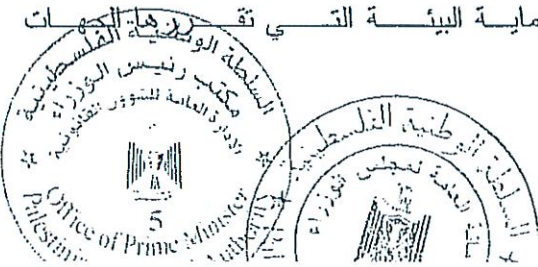 ماية البيئة التي تقررها الجهات
السلطة الوطنية الفلسطينية
مكتب رئيس الوزراء
الإدارة العامة للشؤون القانونية
5
Office of Prime Minister
السلطة الوطنية الفلسطينية
العامة لمجلس الوزراء